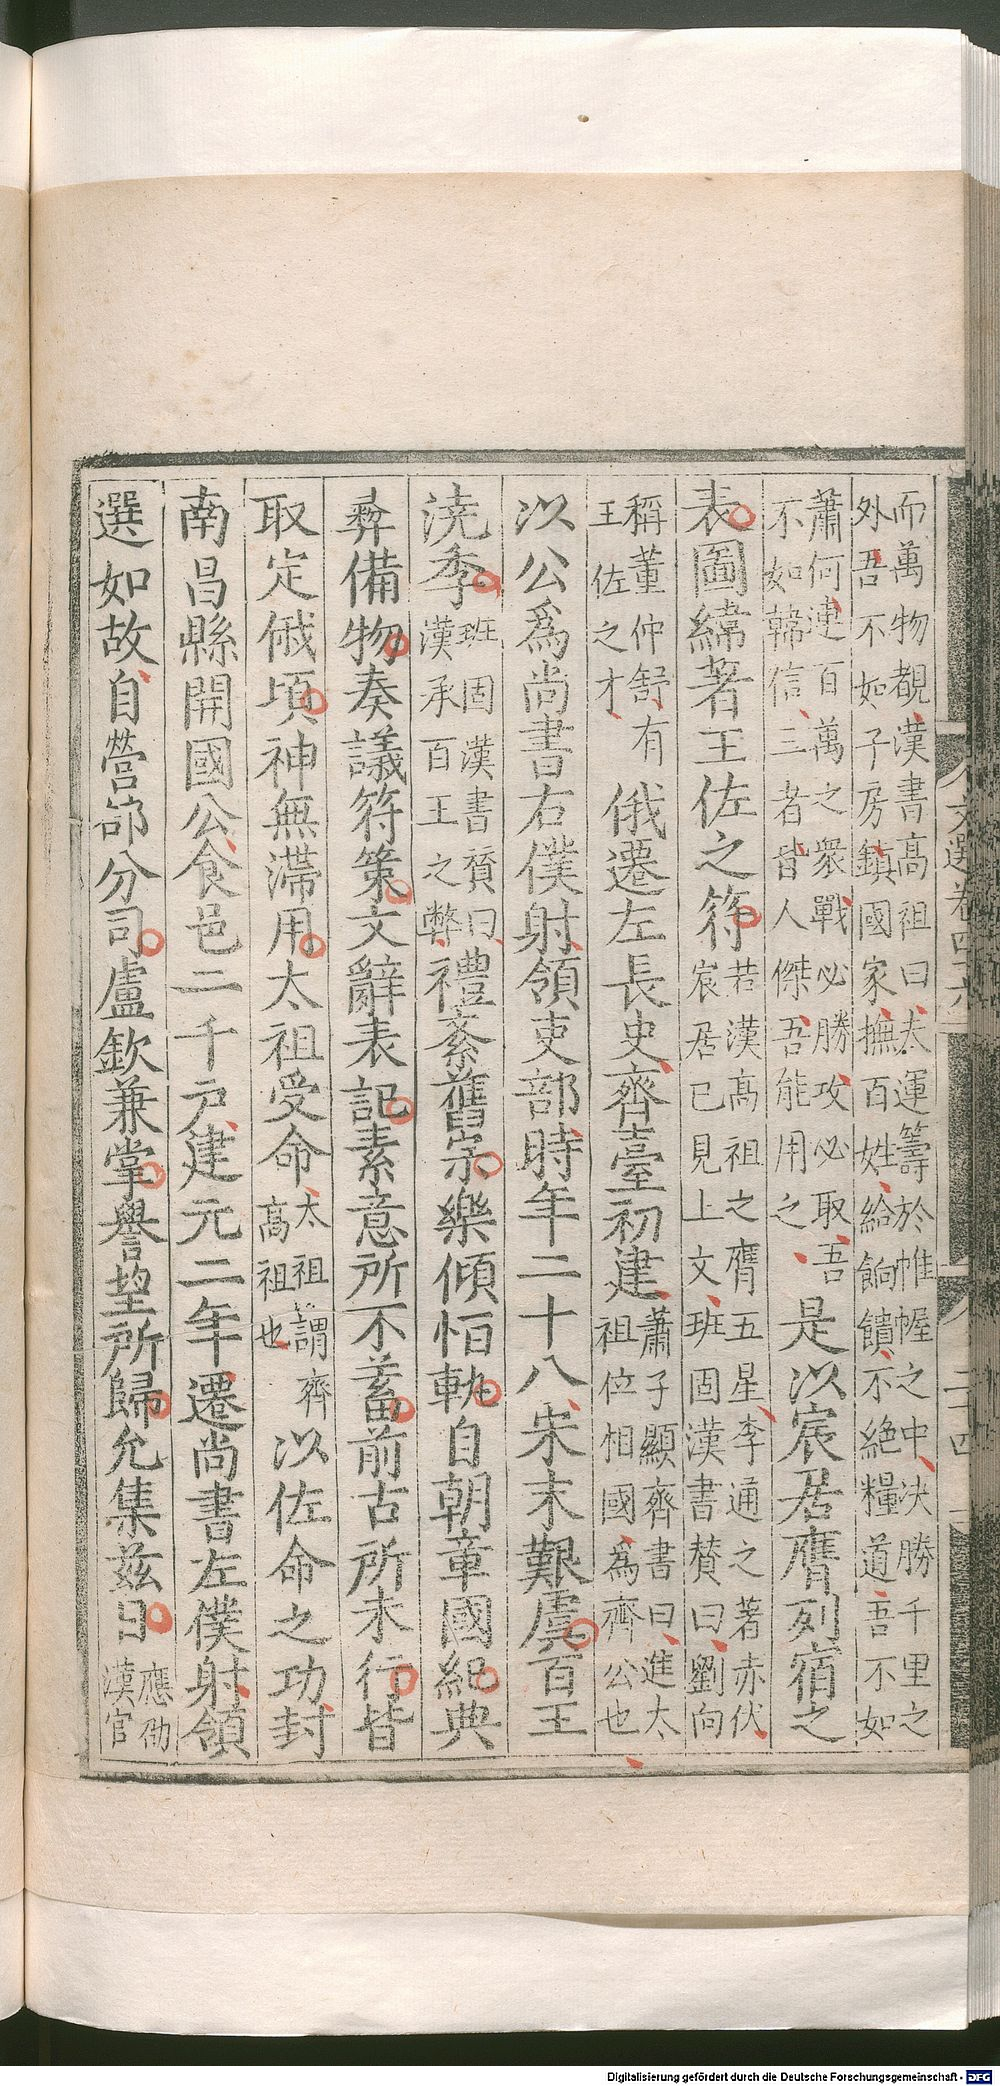 而萬物覩漢書高祖曰夫運籌於帷幄之中决勝千里之
外吾不如子房鎮國家撫百姓給餉饋不絶糧道吾不如
蕭何連百萬之衆戰必勝攻必取吾
不如韓信三者皆人傑吾能用之
是以宸居膺列宿之
表圖緯著王佐之符
若漢高祖之膺五星李通之著赤伏
宸居已見上文班固漢書賛曰劉向
稱董仲舒有
王佐之才
俄遷左長史齊臺初建
蕭子顯齊書曰進太
祖位相國爲齊公也
以公爲尚書右僕射領吏部時年二十八宋末艱虞百王
澆季
班固漢書賛曰
漢承百王之弊
禮紊舊宗樂傾恒軌自朝章國紀典
彝備物奏議符策文辭表記素意所不蓄前古所未行皆
取定俄頃神無滯用太祖受命
太祖謂齊
高祖也
以佐命之功封
南昌縣開國公食邑二千户建元二年遷尚書左僕射領
選如故自營郃分司盧欽兼掌譽望所歸允集兹日
應劭
漢官
文選卷四六
二十四
Digitalisierung gefördert durch die Deutsche Forschungsgemeinschaft - DFG